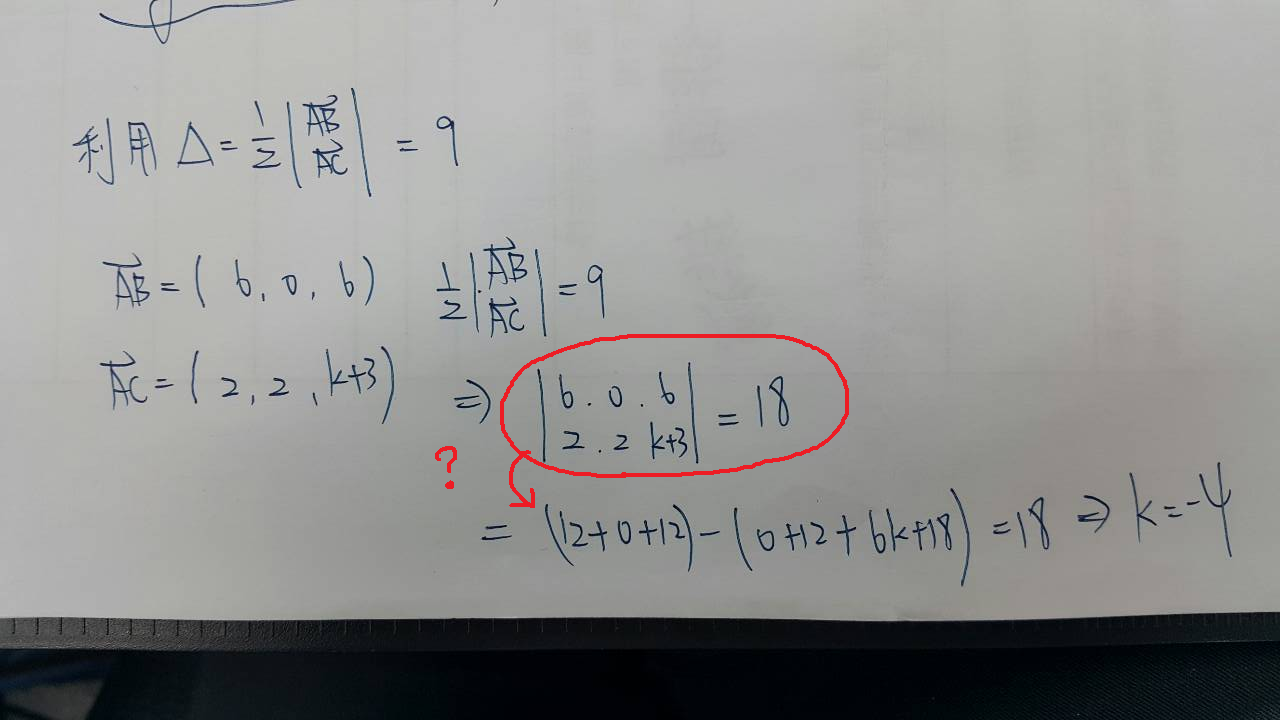 利用 △ = 1/2 |AB⃗ AC⃗| = 9
AB⃗ = ( 6, 0, 6 ) 1/2 |AB⃗ AC⃗| = 9
AC⃗ = ( 2, 2, k+3 ) ⇒ |6 . 0 . 6
2 . 2 k+3| = 18
?
= (12+0+12) - (0+12+6k+18) = 18 ⇒ k = -4